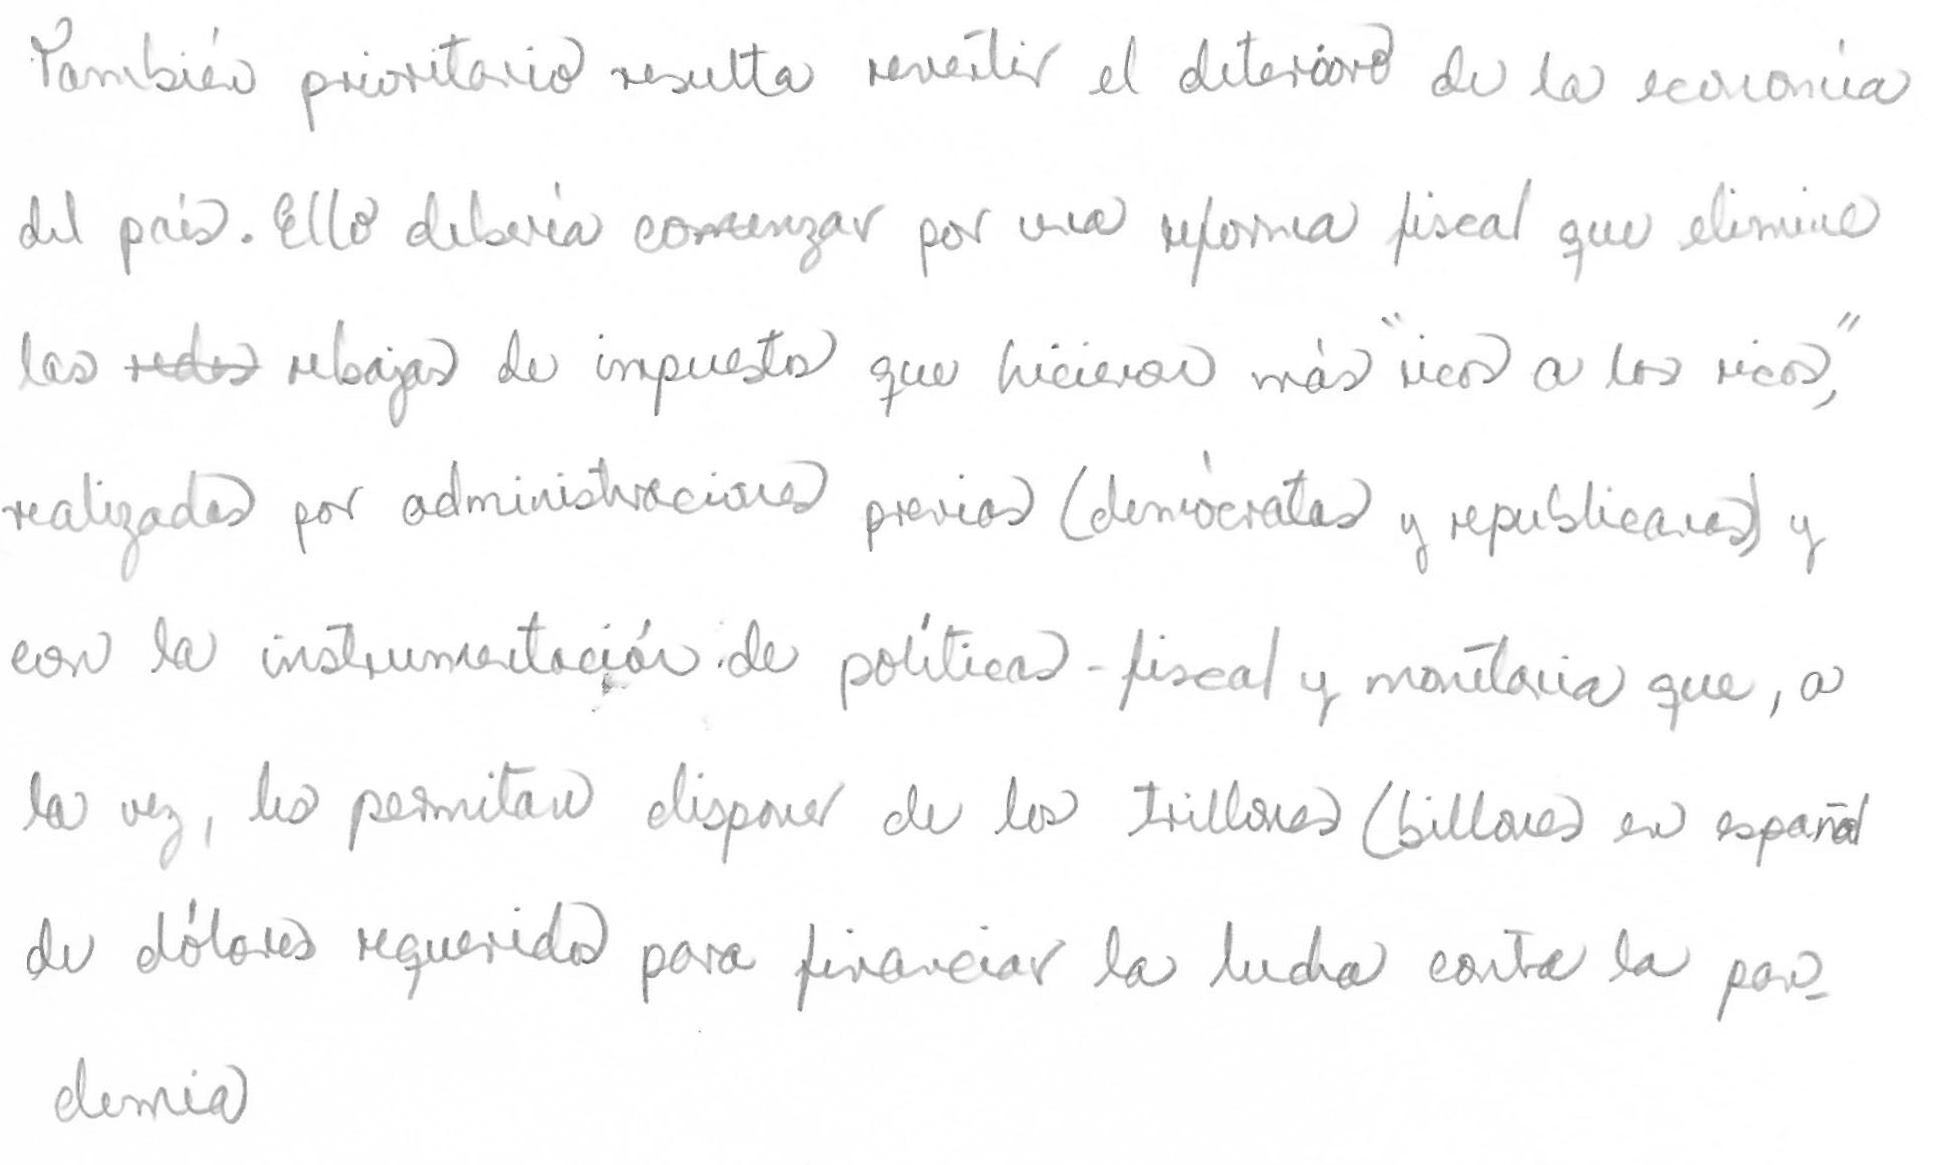 También prioritario resulta revertir el deterioro de la economía
del país. Ello debería comenzar por una reforma fiscal que elimine
las redes rebajas de impuestos que hicieron más "ricos a los ricos,"
realizadas por administraciones previas (demócratas y republicanas) y
con la instrumentación de políticas - fiscal y monetaria que, a
la vez, les permitan disponer de los trillones (billones en español
de dólares requeridos para financiar la lucha contra la pan-
demia